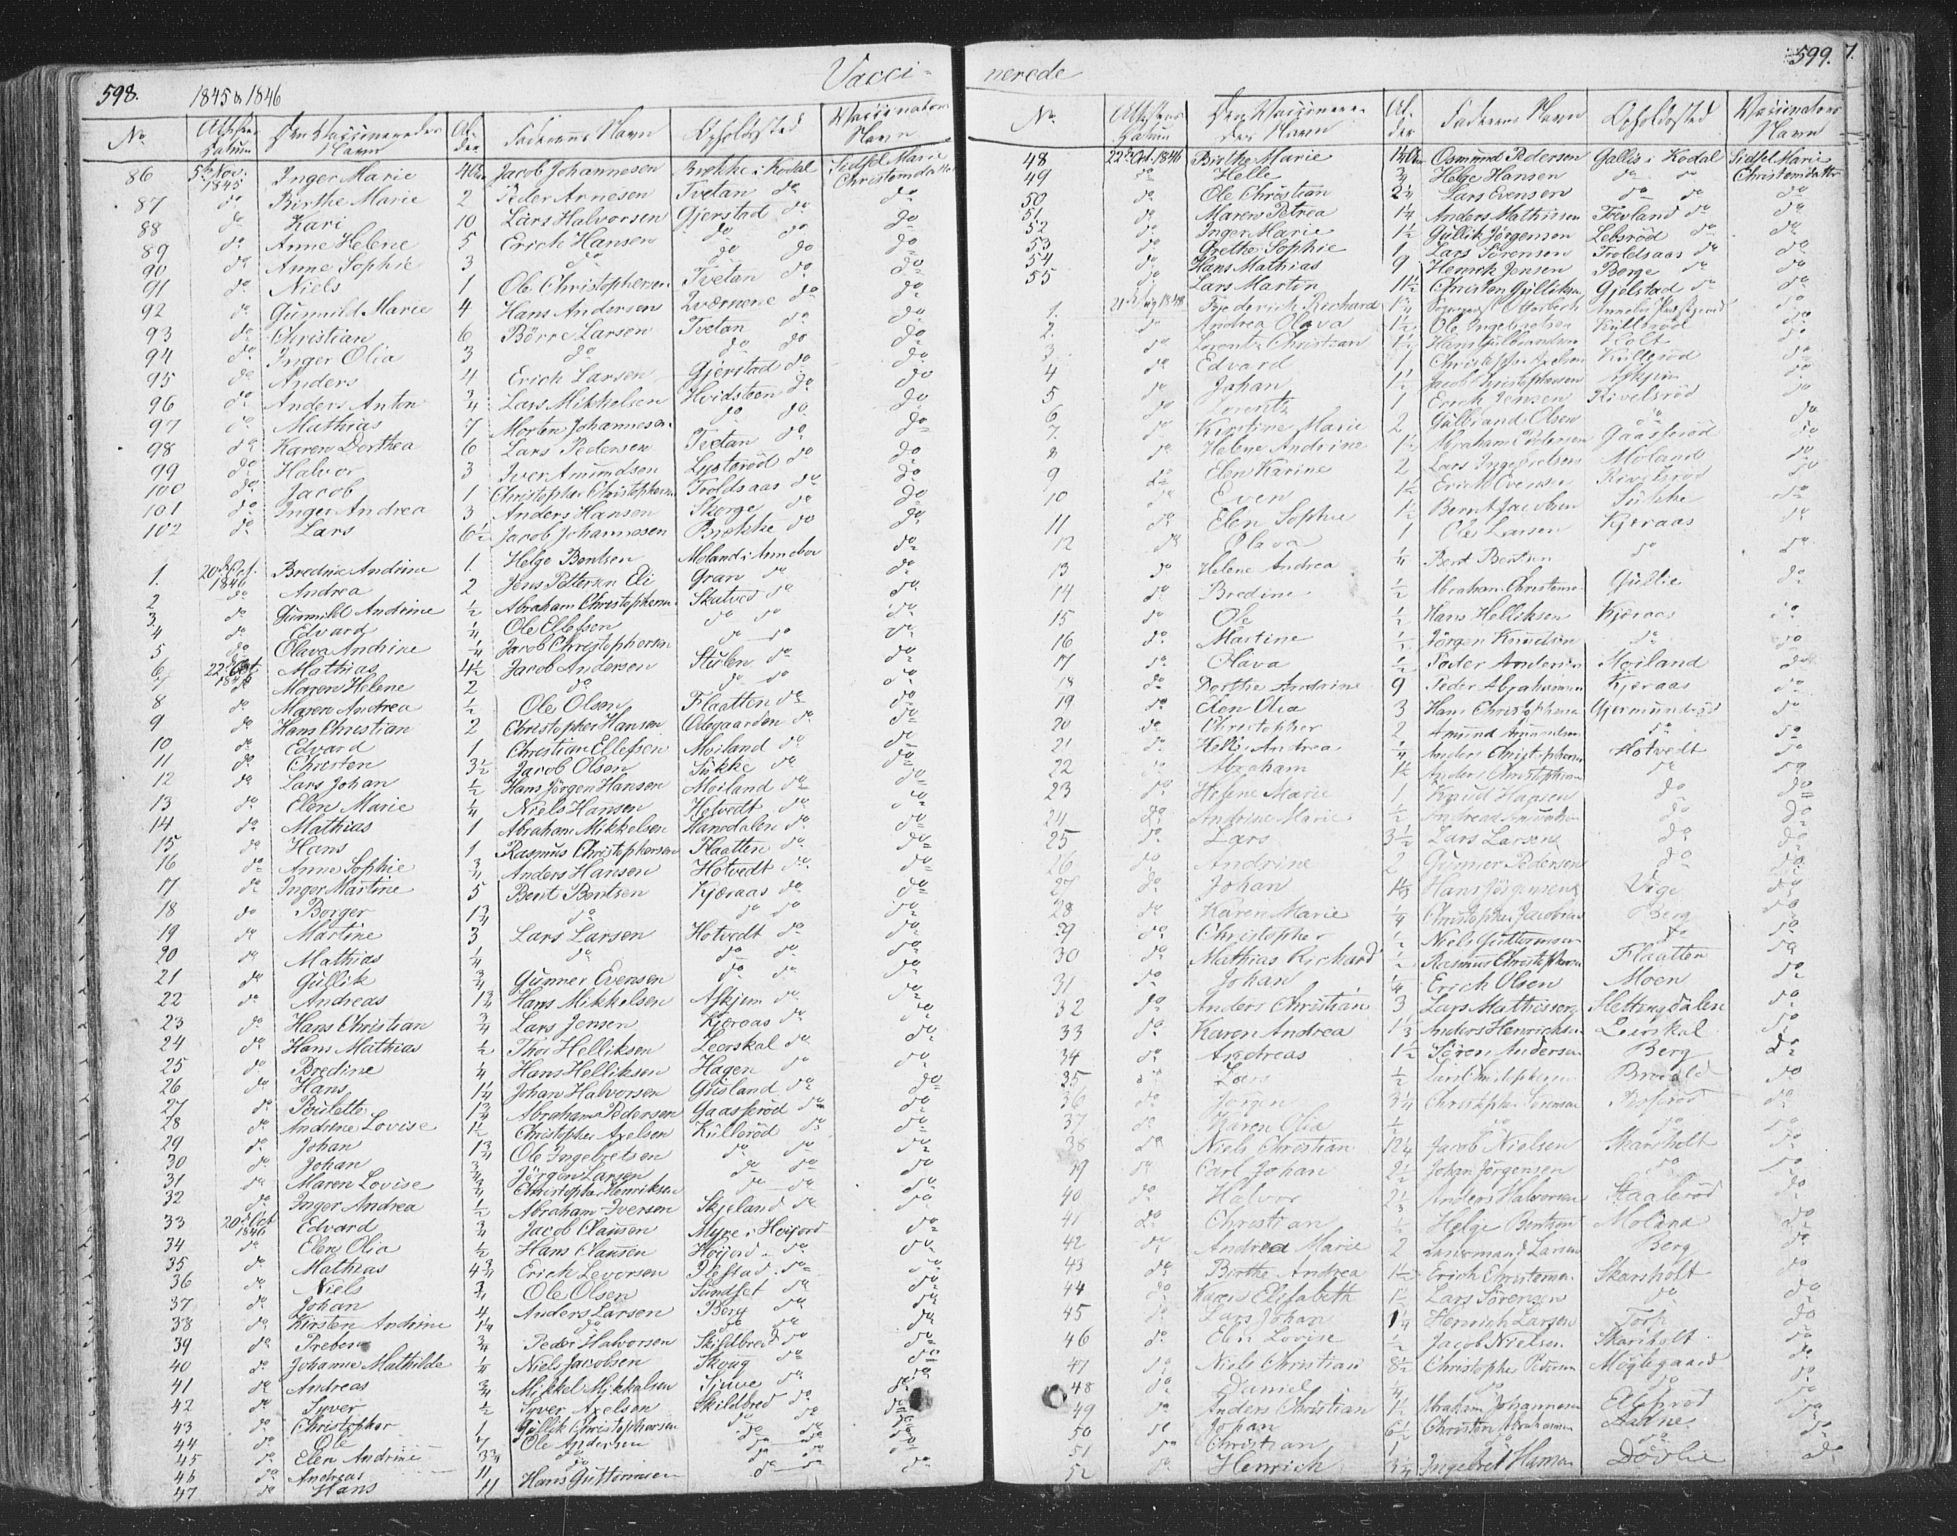 598. 1845 & 1846 Vacci-
No. Attestens Datum Den Vaccineredes Navn Alder Faderens Navn Opholdssted Vaccinators Navn
86 5te Nov. 1845 Inger Marie 4 Jacob Johannesen Brække i Kodal Sidsel Marie Christensdatter
87 do Birthe Marie 2 Peder Arnesen Tvetan do do
88 do Kari 10 Lars Halvorsen Gjerstad do do
89 do Anne Helene 5 Erich Hansen do do do
90 do Anne Sophie 3 do do do do
91 do Niels 1 Ole Christophersen Tvetan do do
92 do Gunnild Marie 4 Hans Andersen Qværnene do do
93 do Christian 6 Børre Larsen Tvetan do do
94 do Inger Olia 3 do do do do
95 do Anders 4 Erich Larsen Gjerstad do do
96 do Anders Anton 3/4 Lars Mikkelsen Hvidsteen do do
97 do Mathias 7 Morten Johannesen do do do
98 do Karen Dorthea 6 Lars Pedersen Tvetan do do
99 do Halvor 3 Iver Amundsen do do
100 do Jacob 1 Christopher Christophersen Troldsaas do do
101 do Inger Andrea 3 Anders Hansen Skorge do do
102 do Lars 6 1/2 Jacob Johannesen Brække do do
1. 20de Oct. 1846 Bredine Andrine 1. Helge Bentsen Moland i Annebov do
2 do Andrea 2 Jens Pettersen Eli Gran do do
3. do Gunnild Andrine 1/2 Abraham Christophersen Skatved do do
4 do Edvard 1/4 Ole Ellefsen do do do
5 do Olava Andrine 1/4 Jacob Christophersen do do do
6 22de Oct. Mathias 4 1/2 Jacob Andersen Stulen do do
7 do Maren Helene 2 do do do do
8 do Maren Andrea 1/2 Ole Olsen Flaatten do do
9 do Hans Christian 2 Christopher Hansen Ødegaarden do do
10 do Edvard 1 Christian Ellefsen Moiland do do
11 do Christen 3 1/2 Jacob Olsen Sukke do do
12 do Lars Johan 1/2 Hans Jörgen Hansen Moiland do do
13 do Elen Marie 1/4 Niels Hansen Hotvedt do do
14 do Mathias 1 Abraham Mikkelsen Hansdalen do do
15 do Hans 1 Rasmus Christophersen Flaatten do do
16 do Anne Sophie 3/4 Anders Hansen Hotvedt do do
17 do Inger Martine 5 Bent Bentsen Kjæraas do do
18 do Borger 1 3/4 do do do do
19 do Martine 3 Lars Larsen Hotvedt do do
20 do Mathias 1/4 do do do do
21 do Gullik 3/4 Gunner Evensen do do do
22 do Andreas 1 3/4 Hans Mikkelsen Askjem do do
23 do Hans Christian 3/4 Lars Jensen Kjæraas do do
24 do Hans Mathias 1/2 Thor Helliksen Leerskal do do
25 do Bredine Hans Helliksen Hagen do do
26 do Hans 1 1/4 Johan Halvorsen Gusland do do
27 do Boulette 1 3/4 Abraham Pedersen Gaasserød do do
28 do Andrine Lovise 1 1/2 Christopher Axelsen Küllerød do do
29 do Johan 1 3/4 Ole Ingebretsen do do do
30 do Johan 3/4 Jörgen Larsen do do do
31 do Maren Lovise Christopher Henriksen do do do
32 do Inger Andrea 1/2 Abraham Iversen Skjeland do do
33 20de Oct. 1846 Edvard 3/4 Jacob Clausen Myre i Høijord do
34 do Elen Olia 1/2 Hans Clausen Høijord do do
35 do Mathias 4 3/4 Erich Levorsen do do
36 do Niels 3/4 Ole Olsen Sundset do do
37 do Johan 4 Anders Larsen Berg do do
38 do Kirsten Andrine 1 1/4 do do do do
39 do Preben 3/4 Peder Halvorsen Skildbred do do
40 do Johanne Mathilde Niels Jacobsen Skoug do do
41 do Andreas 3/4 Mikkel Mikkelsen do do
42 do Syver 1/2 Syver Axelsen Skildbred do do
43 do Christopher 1 Gullik Christophersen do do do
44 do Ole Ole Andersen do do do
45 do Elen Andrine do do do do
46 do Andreas 11
47 do Hans 11 Hans Guttormsen do do do
nerede 599. 7.
No. Attestens Datum Den Vaccineredes Navn Alder Faderens Navn Opholdssted Vaccinators Navn
48 22de Oct. 1846 Birthe Marie Osmund Pedersen Gallis i Kodal Sidsel Marie
49 do Helle 3/4 Helge Hansen do do Christensdatter
50 do Ole Christian 2 1/4 Lars Evensen do do do
51. do Maren Petrea 1 1/4 Anders Mathisen Trevland do do
52 do Inger Marie 1 1/2 Gullik Jörgensen Lebsrød do do
53 do Grethe Sophie 1 Lars Sörensen Troldsaas do do
54 do Hans Mathias 9 Henrik Jensen Berge do do
55 do Lars Martin 11 1/2 Christen Gulliksen Gjelstad do do
1. 1848 Frederich Richard do
2. do Andrea Olava 1 1/2 Ole Ingebretsen Küllerød do
3 do Lorentz Christian 1 1/2 Hans Gulbrandsen Holt do
4 do Edvard 1 Christopher Axelsen Küllerød do
5 do Johan 1 1/2 Jacob Christophersen Askjem do
6 do Lorentz 1 Erich Jensen do
7. do Kirstine Marie 2 Gulbrand Olsen do do
8 do Helene Andrine Abraham Pedersen Gaasserød do
9 do Elen Karine 2 Lars Ingebretsen Moland do
10 do Even 1 1/2 Erich Evensen do
11 do Elen Sophie 1 1/2 Bernt Jacobsen Sukke do
12 do Olava 1 Ole Larsen Kjæraas do
13 do Helene Andrea 1/4 Bent Bentsen do do
14 do Bredine 1/2 Abraham Christensen Gullie do
15 do Ole 1/2 Hans Helliksen Kjæraas do
16 do Martine 1/2 Jörgen Knudsen do do
17 do Olava 1/2 Peder Andersen Moiland do
18 do Dorthe Andrine 9 Peder Abrahamsen Kjæraas do
19 do Elen Olia 3 Hans Christophersen Gjermundrød do
20 do Christopher 2 Amund Amundsen do do
21 do Helle Andrea 1/4 Anders Christophersen Hotvedt do
22 do Abraham Anders Christophersen do do
23 do Helene Marie 1 Knud Hansen do do
24 do Andrine Marie 1/2 do do
25 do Lars 3 1/2 Lars Larsen do do
26 do Andrine 2 Gunner Pedersen do do
27 do Johan Hans Jörgensen Vige do
28 do Karen Marie 1/4 Christopher Jacobsen Berg do
29 do Christopher 1/2 Niels Guttormsen do do
30 do Mathias Richard 1/2 Rasmus Christophersen Flaatten do
31 do Johan Erich Olsen Moen do
32 do Anders Christian 3 Lars Mathisen Slettingdalen do
33 do Karen Andrea 1 1/3 Anders Henriksen Leerskal do
34 do Andreas 1 1/2 Sören Andersen Berg do
35 do Lars 1/2 Lars Christophersen do
36 do Jörgen 3 1/4 Christopher Sörensen do
37 do Karen Olia do do do
38 do Niels Christian 12 1/4 Jacob Nielsen Skarsholt do
39 do Carl Johan 2 1/2 Johan Jörgensen do do
40 do Halvor Anders Halvorsen Staalerød do
41 do Christian 1/2 Helge Bentsen Moland do
42 do Andrea Marie 2 Larsen Berg do
43 do Birthe Andrea 1 1/2 Erich Christensen Skarsholt do
44 do Karen Elisabeth Lars Sörensen do do
45 do Lars Johan Henrich Larsen Torp do
46 do Elen Lovise 1/2 Jacob Nielsen Skarsholt do
47 do Niels Christian 8 1/2 Christopher Pedersen Møglegaard do
48 do Daniel do do do
49 do Anders Christian Abraham Johannesen do
50 do Johan 6 1/2 Christen Abrahamsen do
51 do Christian do
52 do Henrich 3 1/4 Ingebret Hansen do